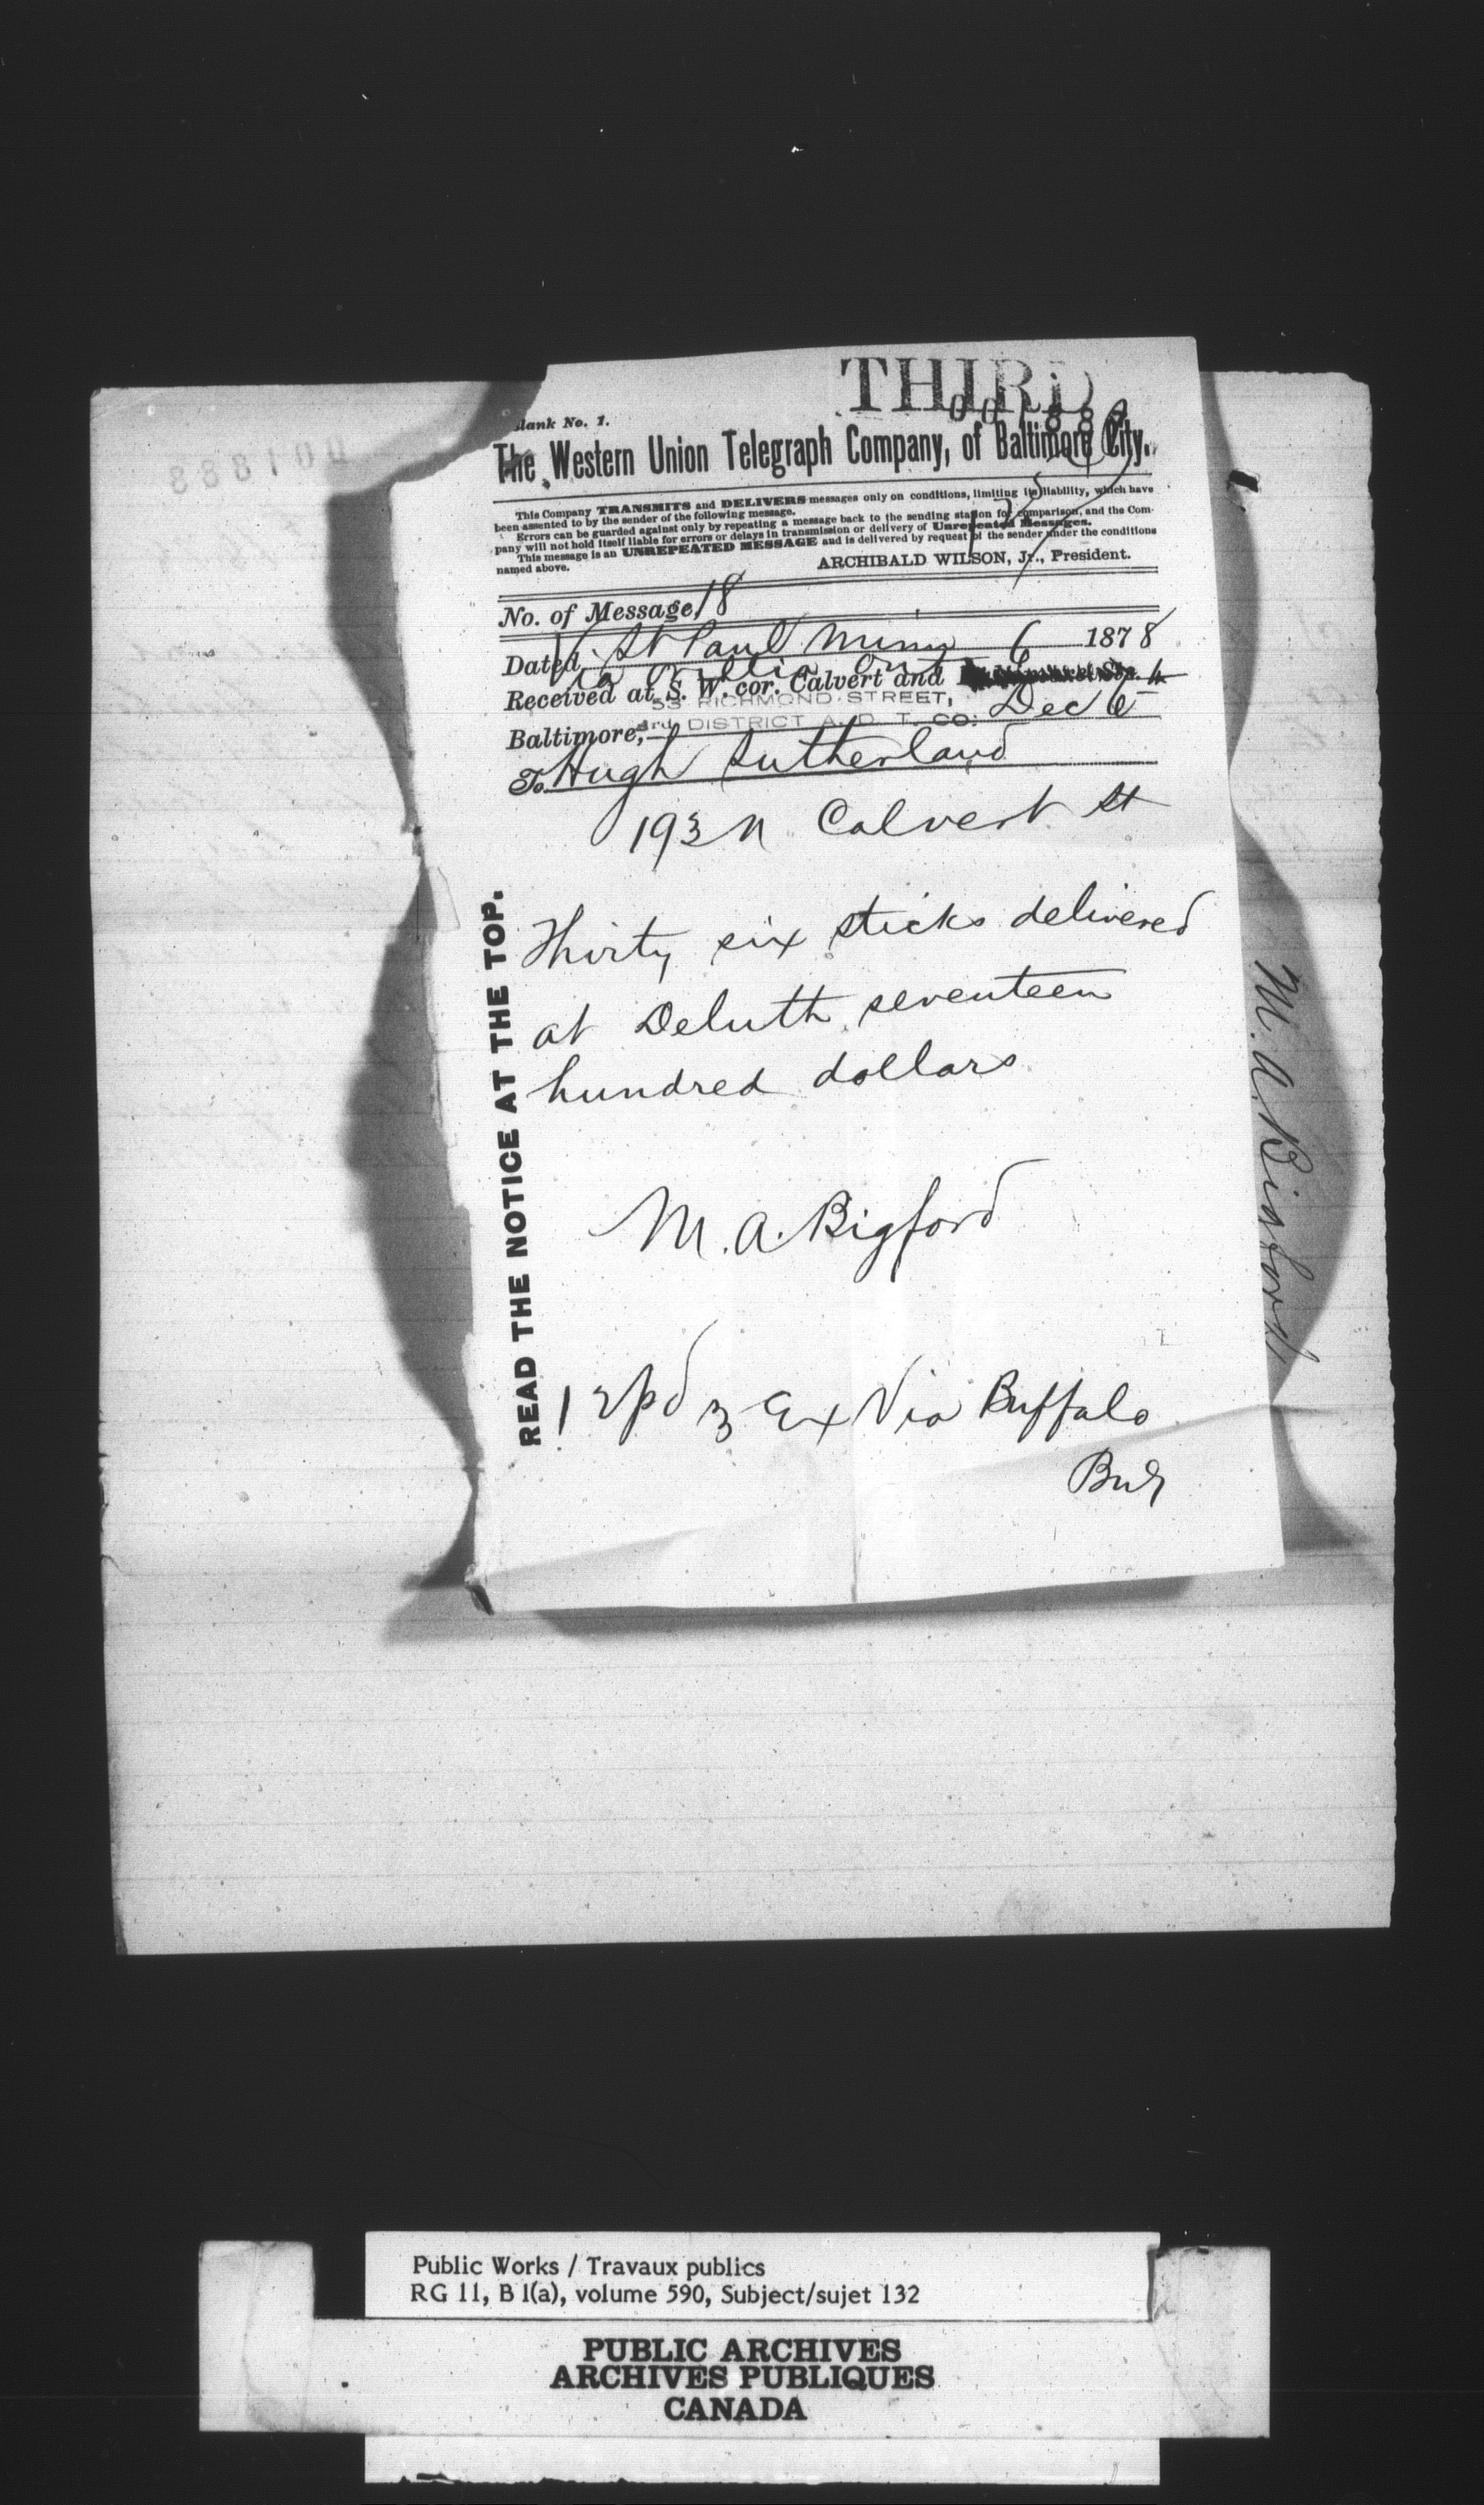 THIRD
Blank No. 1.
The Western Union Telegraph Company, of Baltimore City.
This Company TRANSMITS and DELIVERS messages only on conditions, limiting its liability, which have
been assented to by the sender of the following message.
Errors can be guarded against only by repeating a message back to the sending station for comparison, and the Com-
pany will not hold itself liable for errors or delays in transmission or delivery of Unrepeated Messages.
This message is an UNREPEATED MESSAGE and is delivered by request of the sender under the conditions
named above.
ARCHIBALD WILSON, Jr., President.
No. of Message 18
Dated St Paul Minn 6 1878
Via Orillia Ont
Received at S. W. cor. Calvert and
53 RICHMOND STREET,
Baltimore, 3rd DISTRICT A. D. T. CO. Dec 6
To Hugh Sutherland
193 N Calvert St
Thirty six sticks delivered
at Deluth seventeen
hundred dollars
M. A. Bigford
12 pd 3 Ex Via Buffalo
READ THE NOTICE AT THE TOP.
M. A. Bigford
Public Works / Travaux publics
RG 11, B 1(a), volume 590, Subject/sujet 132
PUBLIC ARCHIVES
ARCHIVES PUBLIQUES
CANADA